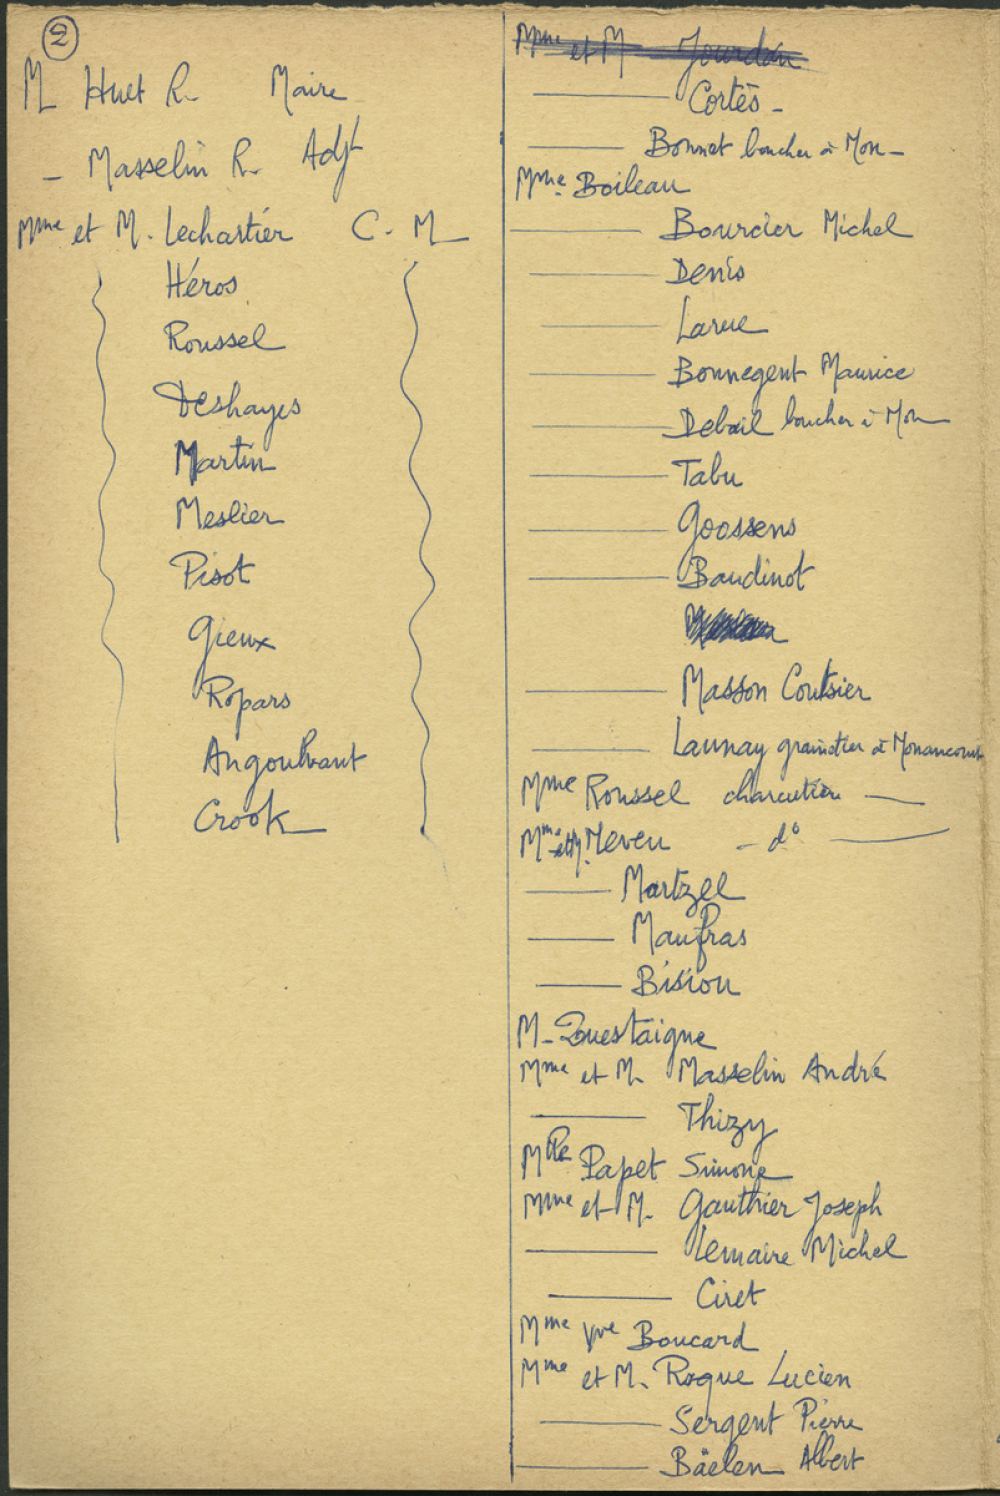 2
M Huet R. Maire
- Masselin R. Adjt
Mme et M. Lechartier C. M
Héros
Roussel
Deshayes
Martin
Meslier
Pisot
Gieux
Ropars
Angoulvant
Crook
Mme et M Jourdan
Cortès -
Bonnet boucher à Mon -
Mme Boileau
Bourcier Michel
Denis
Larue
Bonnegent Maurice
Debail boucher à Mon
Tabu
Goossens
Baudinot
Masson Coutsier
Launay grainetier à Monancourt
Mme Roussel charcutière
Mme et M. Neveu - d°
Martzel
Maufras
Bision
M - Questaigne
Mme et M. Masselin André
Thizy
Mlle Papet Simone
Mme et M. Gauthier Joseph
Lemaire Michel
Ciret
Mme Vve Boucard
Mme et M. Roque Lucien
Sergent Pierre
Bäelen Albert